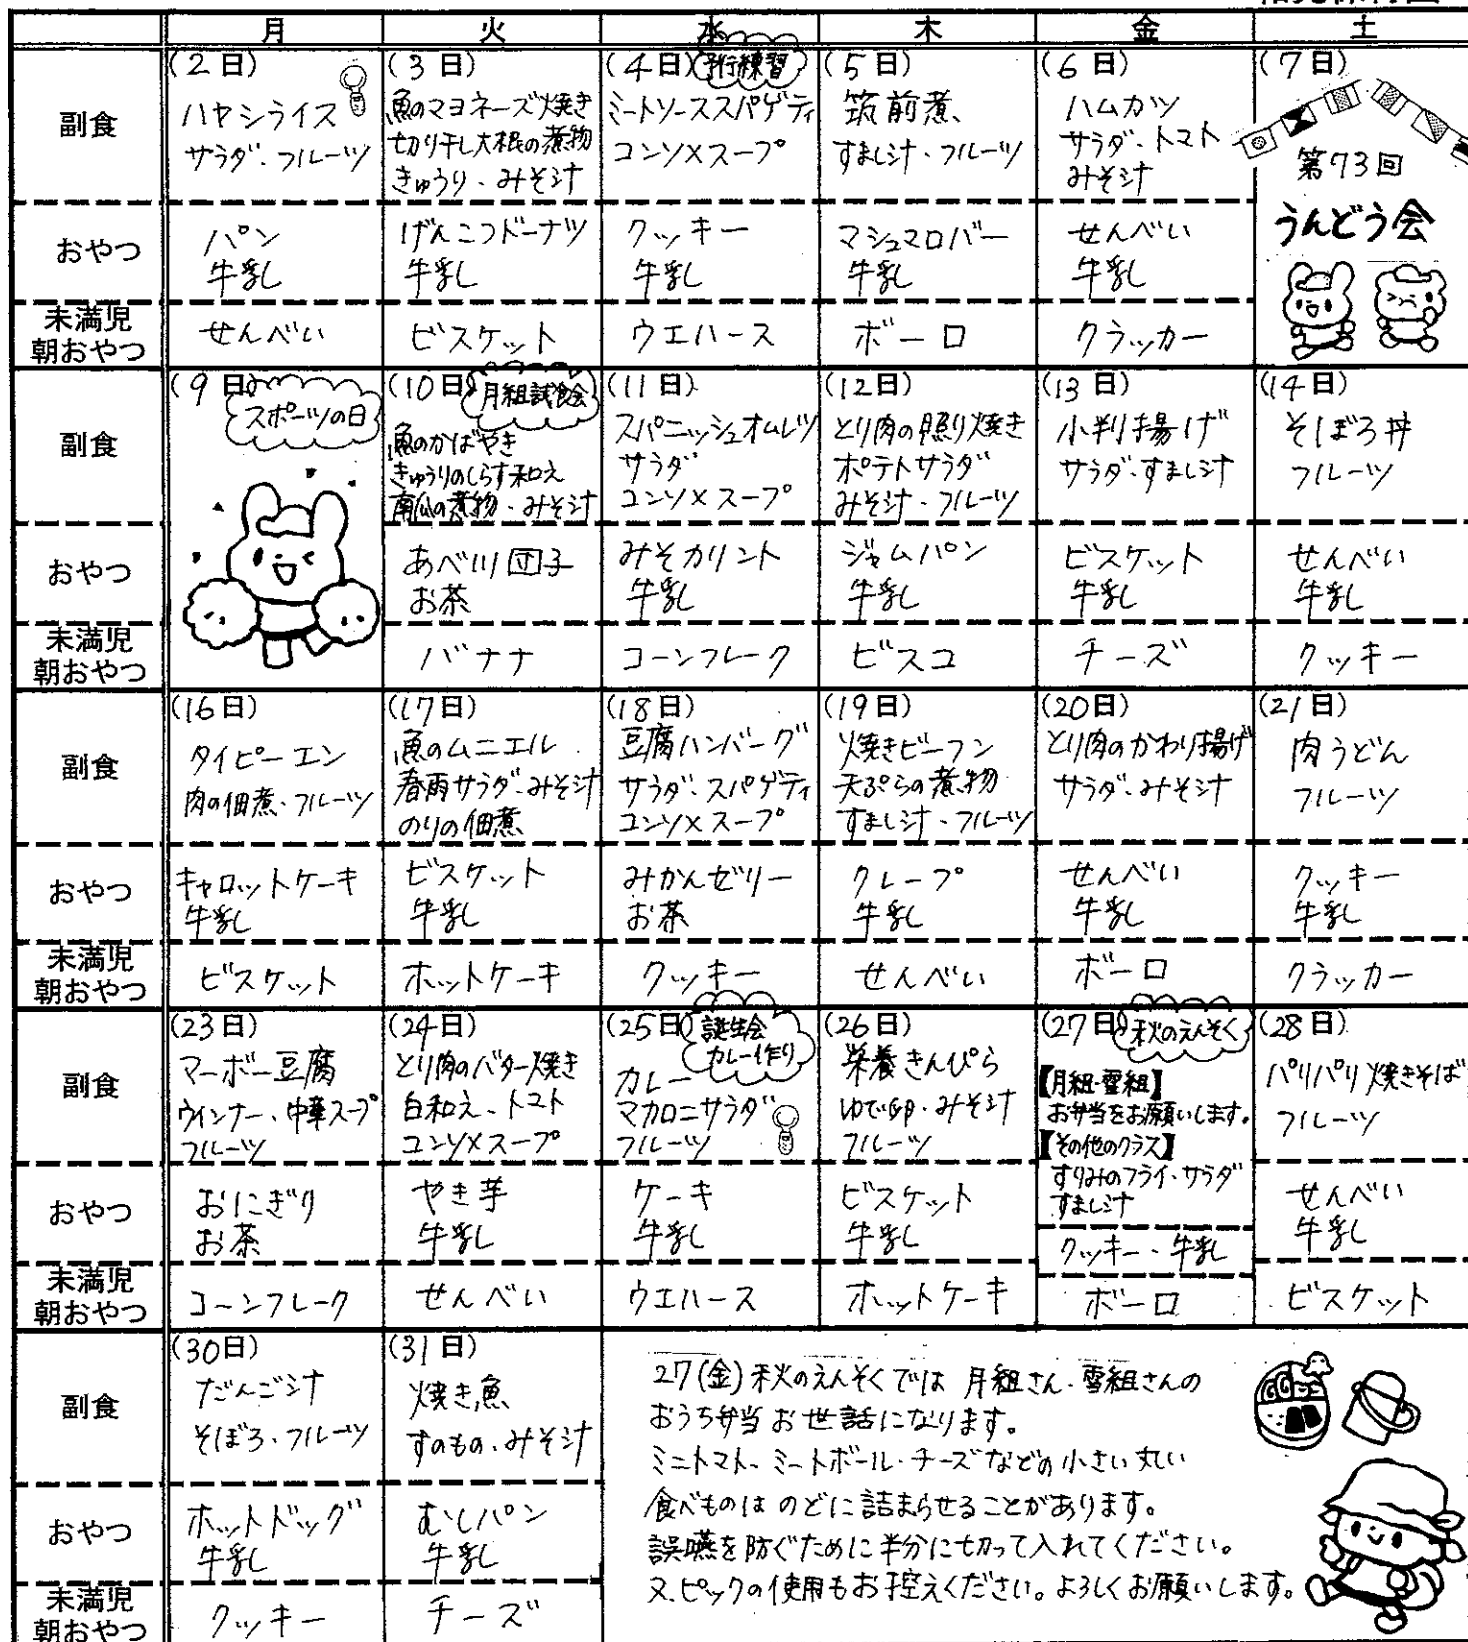 月 火 水 木 金 土
副食
(2日)
ハヤシライス
サラダ・フルーツ
(3日)
魚のマヨネーズ焼き
切り干し大根の煮物
きゅうり・みそ汁
(4日) 予行練習
ミートソーススパゲティ
コンソメスープ
(5日)
筑前煮、
すまし汁・フルーツ
(6日)
ハムカツ
サラダ・トマト
みそ汁
(7日)
第73回
うんどう会
おやつ
パン
牛乳
げんこつドーナツ
牛乳
クッキー
牛乳
マシュマロバー
牛乳
せんべい
牛乳
未満児
朝おやつ
せんべい
ビスケット
ウエハース
ボーロ
クラッカー
副食
(9日)
スポーツの日
(10日) 月組試食会
魚のかばやき
きゅうりのしらす和え
南瓜の煮物・みそ汁
(11日)
スパニッシュオムレツ
サラダ
コンソメスープ
(12日)
とり肉の照り焼き
ポテトサラダ
みそ汁・フルーツ
(13日)
小判揚げ
サラダ・すまし汁
(14日)
そぼろ丼
フルーツ
おやつ
あべ川団子
お茶
みそカリント
牛乳
ジャムパン
牛乳
ビスケット
牛乳
せんべい
牛乳
未満児
朝おやつ
バナナ
コーンフレーク
ビスコ
チーズ
クッキー
副食
(16日)
タイピーエン
肉の佃煮・フルーツ
(17日)
魚のムニエル
春雨サラダ・みそ汁
のりの佃煮
(18日)
豆腐ハンバーグ
サラダ・スパゲティ
コンソメスープ
(19日)
焼きビーフン
天ぷらの煮物
すまし汁・フルーツ
(20日)
とり肉のかわり揚げ
サラダ・みそ汁
(21日)
肉うどん
フルーツ
おやつ
キャロットケーキ
牛乳
ビスケット
牛乳
みかんゼリー
お茶
クレープ
牛乳
せんべい
牛乳
クッキー
牛乳
未満児
朝おやつ
ビスケット
ホットケーキ
クッキー
せんべい
ボーロ
クラッカー
副食
(23日)
マーボー豆腐
ウインナー、中華スープ
フルーツ
(24日)
とり肉のバター焼き
白和え、トマト
コンソメスープ
(25日) 誕生会
カレー作り
カレー
マカロニサラダ
フルーツ
(26日)
栄養きんぴら
ゆで卵・みそ汁
フルーツ
(27日) 秋のえんそく
【月組・雪組】
お弁当をお願いします。
【その他のクラス】
すりみのフライ・サラダ
すまし汁
(28日)
パリパリ焼きそば
フルーツ
おやつ
おにぎり
お茶
やき芋
牛乳
ケーキ
牛乳
ビスケット
牛乳
クッキー・牛乳
せんべい
牛乳
未満児
朝おやつ
コーンフレーク
せんべい
ウエハース
ホットケーキ
ボーロ
ビスケット
副食
(30日)
だんご汁
そぼろ・フルーツ
(31日)
焼き魚
すのもの・みそ汁
おやつ
ホットドッグ
牛乳
むしパン
牛乳
未満児
朝おやつ
クッキー
チーズ
27(金)秋のえんそくでは 月組さん・雪組さんの
おうち弁当お世話になります。
ミニトマト、ミートボール・チーズなどの小さい丸い
食べものは のどに詰まらせることがあります。
誤嚥を防ぐために半分に切って入れてください。
又、ピックの使用もお控えください。よろしくお願いします。